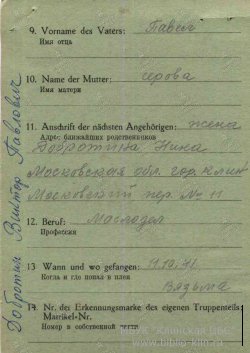 Добротин Виктор Павлович
9. Vorname des Vaters: Павел
Имя отца
10. Name der Mutter:
Имя матери
11. Anschrift der nächsten Angehörigen: жена
Адрес ближайших родственников
Добротина Нина
Московская обл. гор. Клин
Московский пер. № 11
12. Beruf:
Профессия
13 Wann und wo gefangen: 9.10.41
Когда и где попал в плен
Вязьма
14. Nr. der Erkennungsmarke des eigenen Truppenteils
Matrikel-Nr.
Номер в собственной части
www.biblio-klin.ru